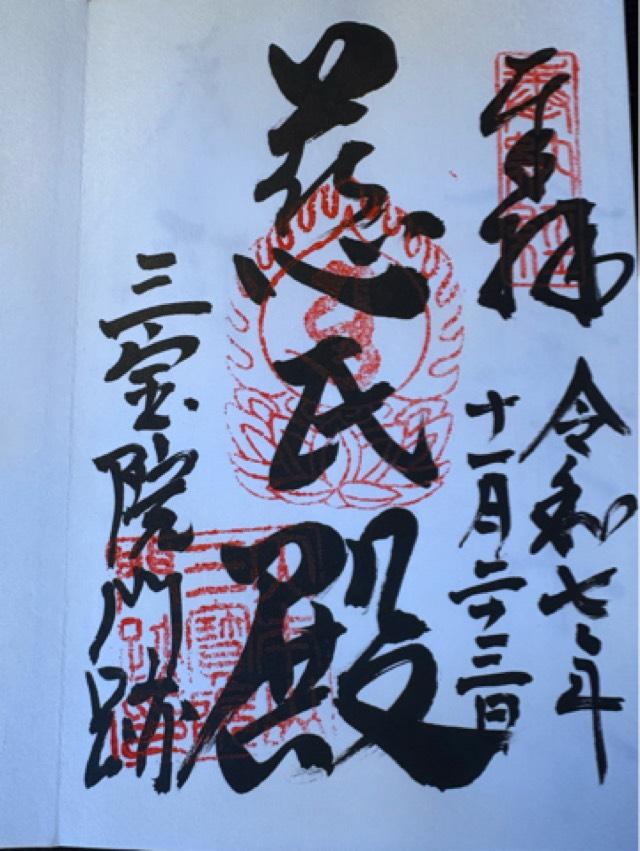 奉拝
令和七年
十一月二十三日
慈氏殿
三宝院門跡